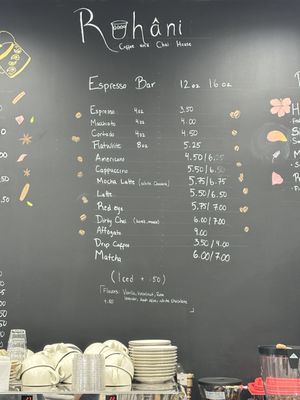 Rohâni
Coffee and Chai House
Espresso Bar 12oz 16oz
Espresso 4oz 3.50
Macchiato 4oz 4.00
Cortado 4oz 4.50
Flatwhite 8oz 5.25
Americano 4.50/6.25
Cappuccino 5.50/6.50
Mocha Latte (White Chocolate) 5.75/6.75
Latte 5.50/6.50
Red eye 5.75/7.00
Dirty Chai 6.00/7.00
Affogato 9.00
Drip Coffee 3.50/4.00
Matcha 6.00/7.00
(Iced + .50)
Flavors: Vanilla, Hazelnut, Rose
+.50